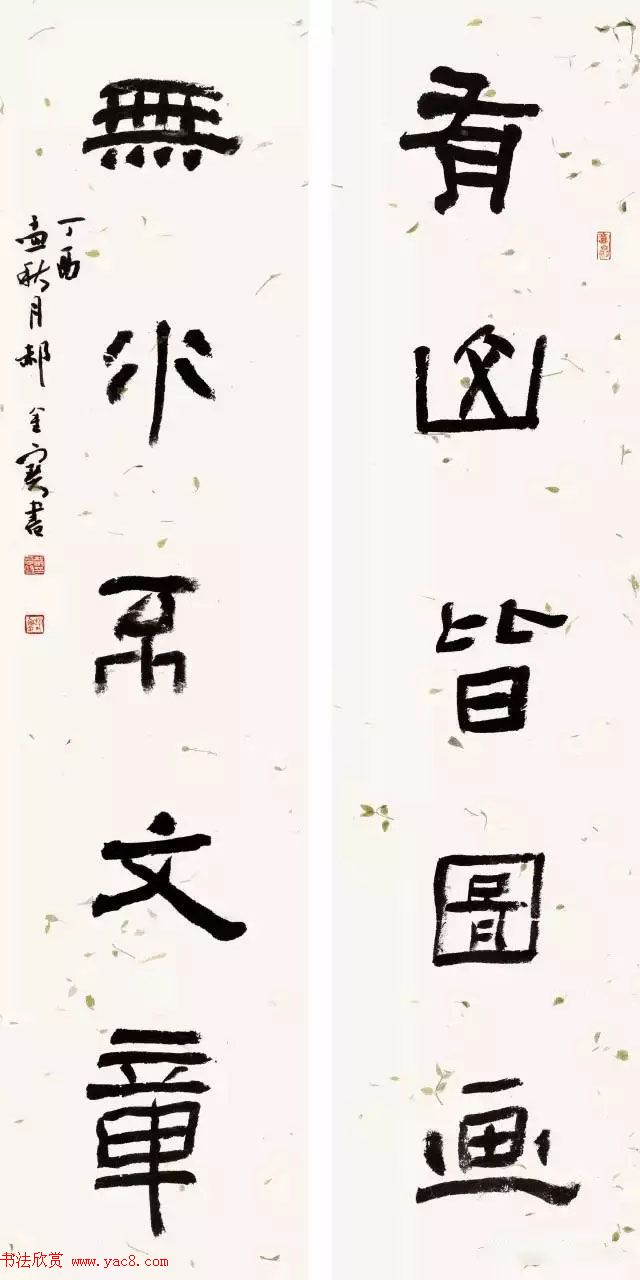 有山皆圖画
無水不文章
丁酉
孟秋月郝金寶書
书法欣赏 www.yac8.com